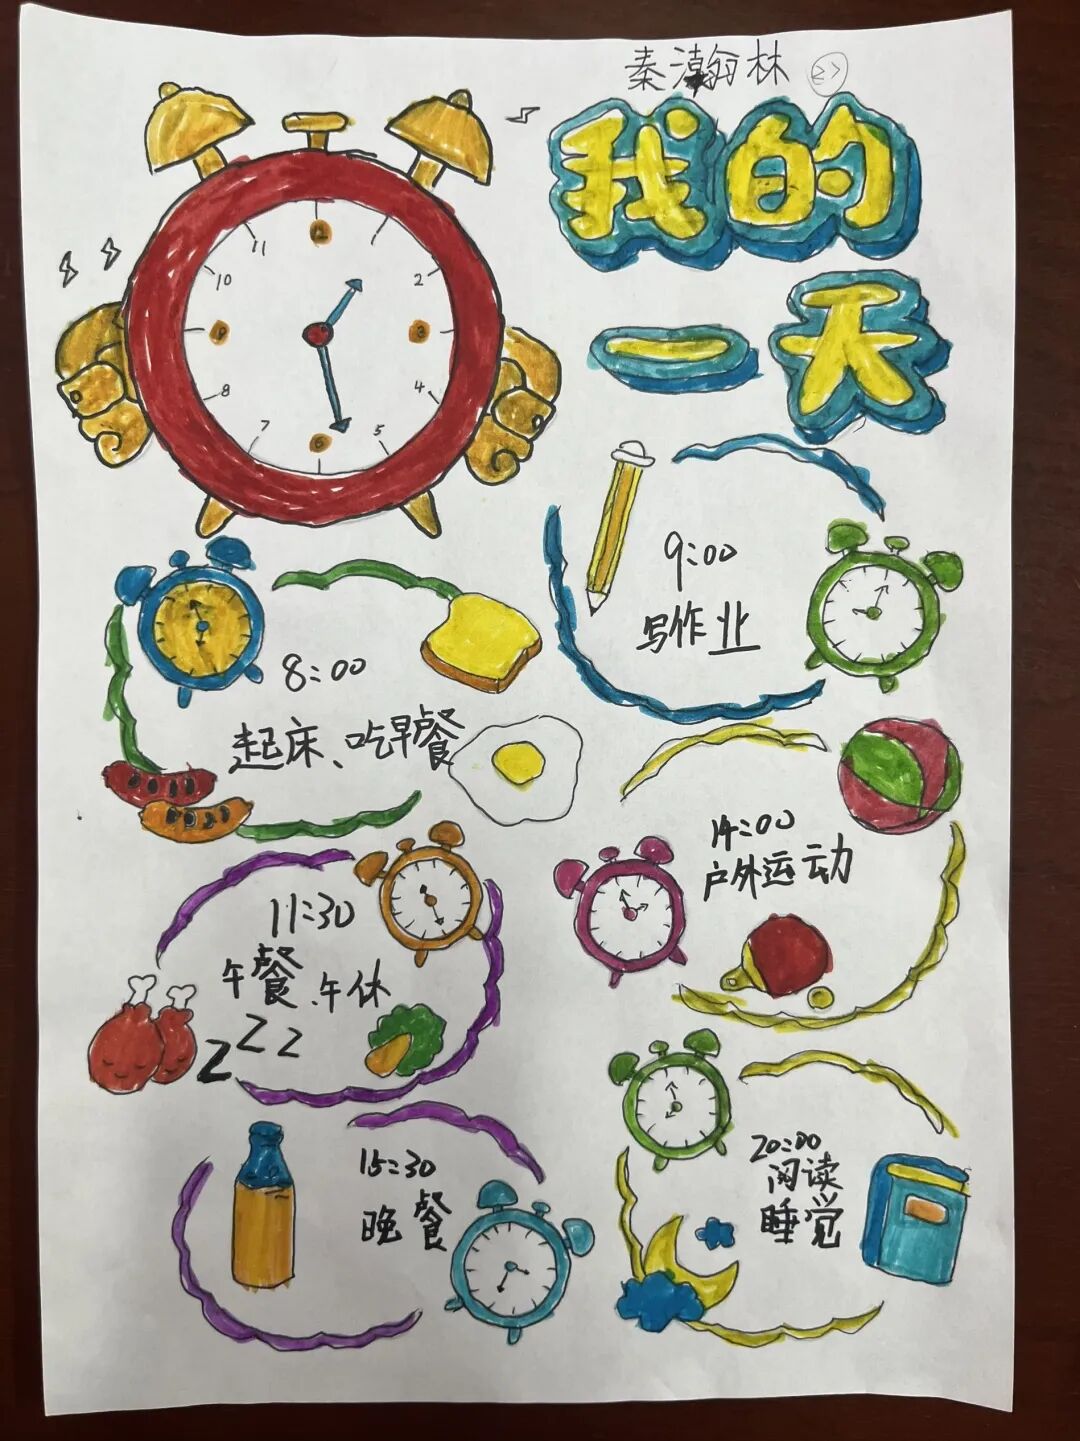 秦瀚林
我的
一天
11
10
2
9
3
8
4
7
6
5
9:00
写作业
8:00
起床、吃早餐
14:00
户外运动
11:30
午餐、午休
ZZZ
15:30
晚餐
20:00
阅读
睡觉